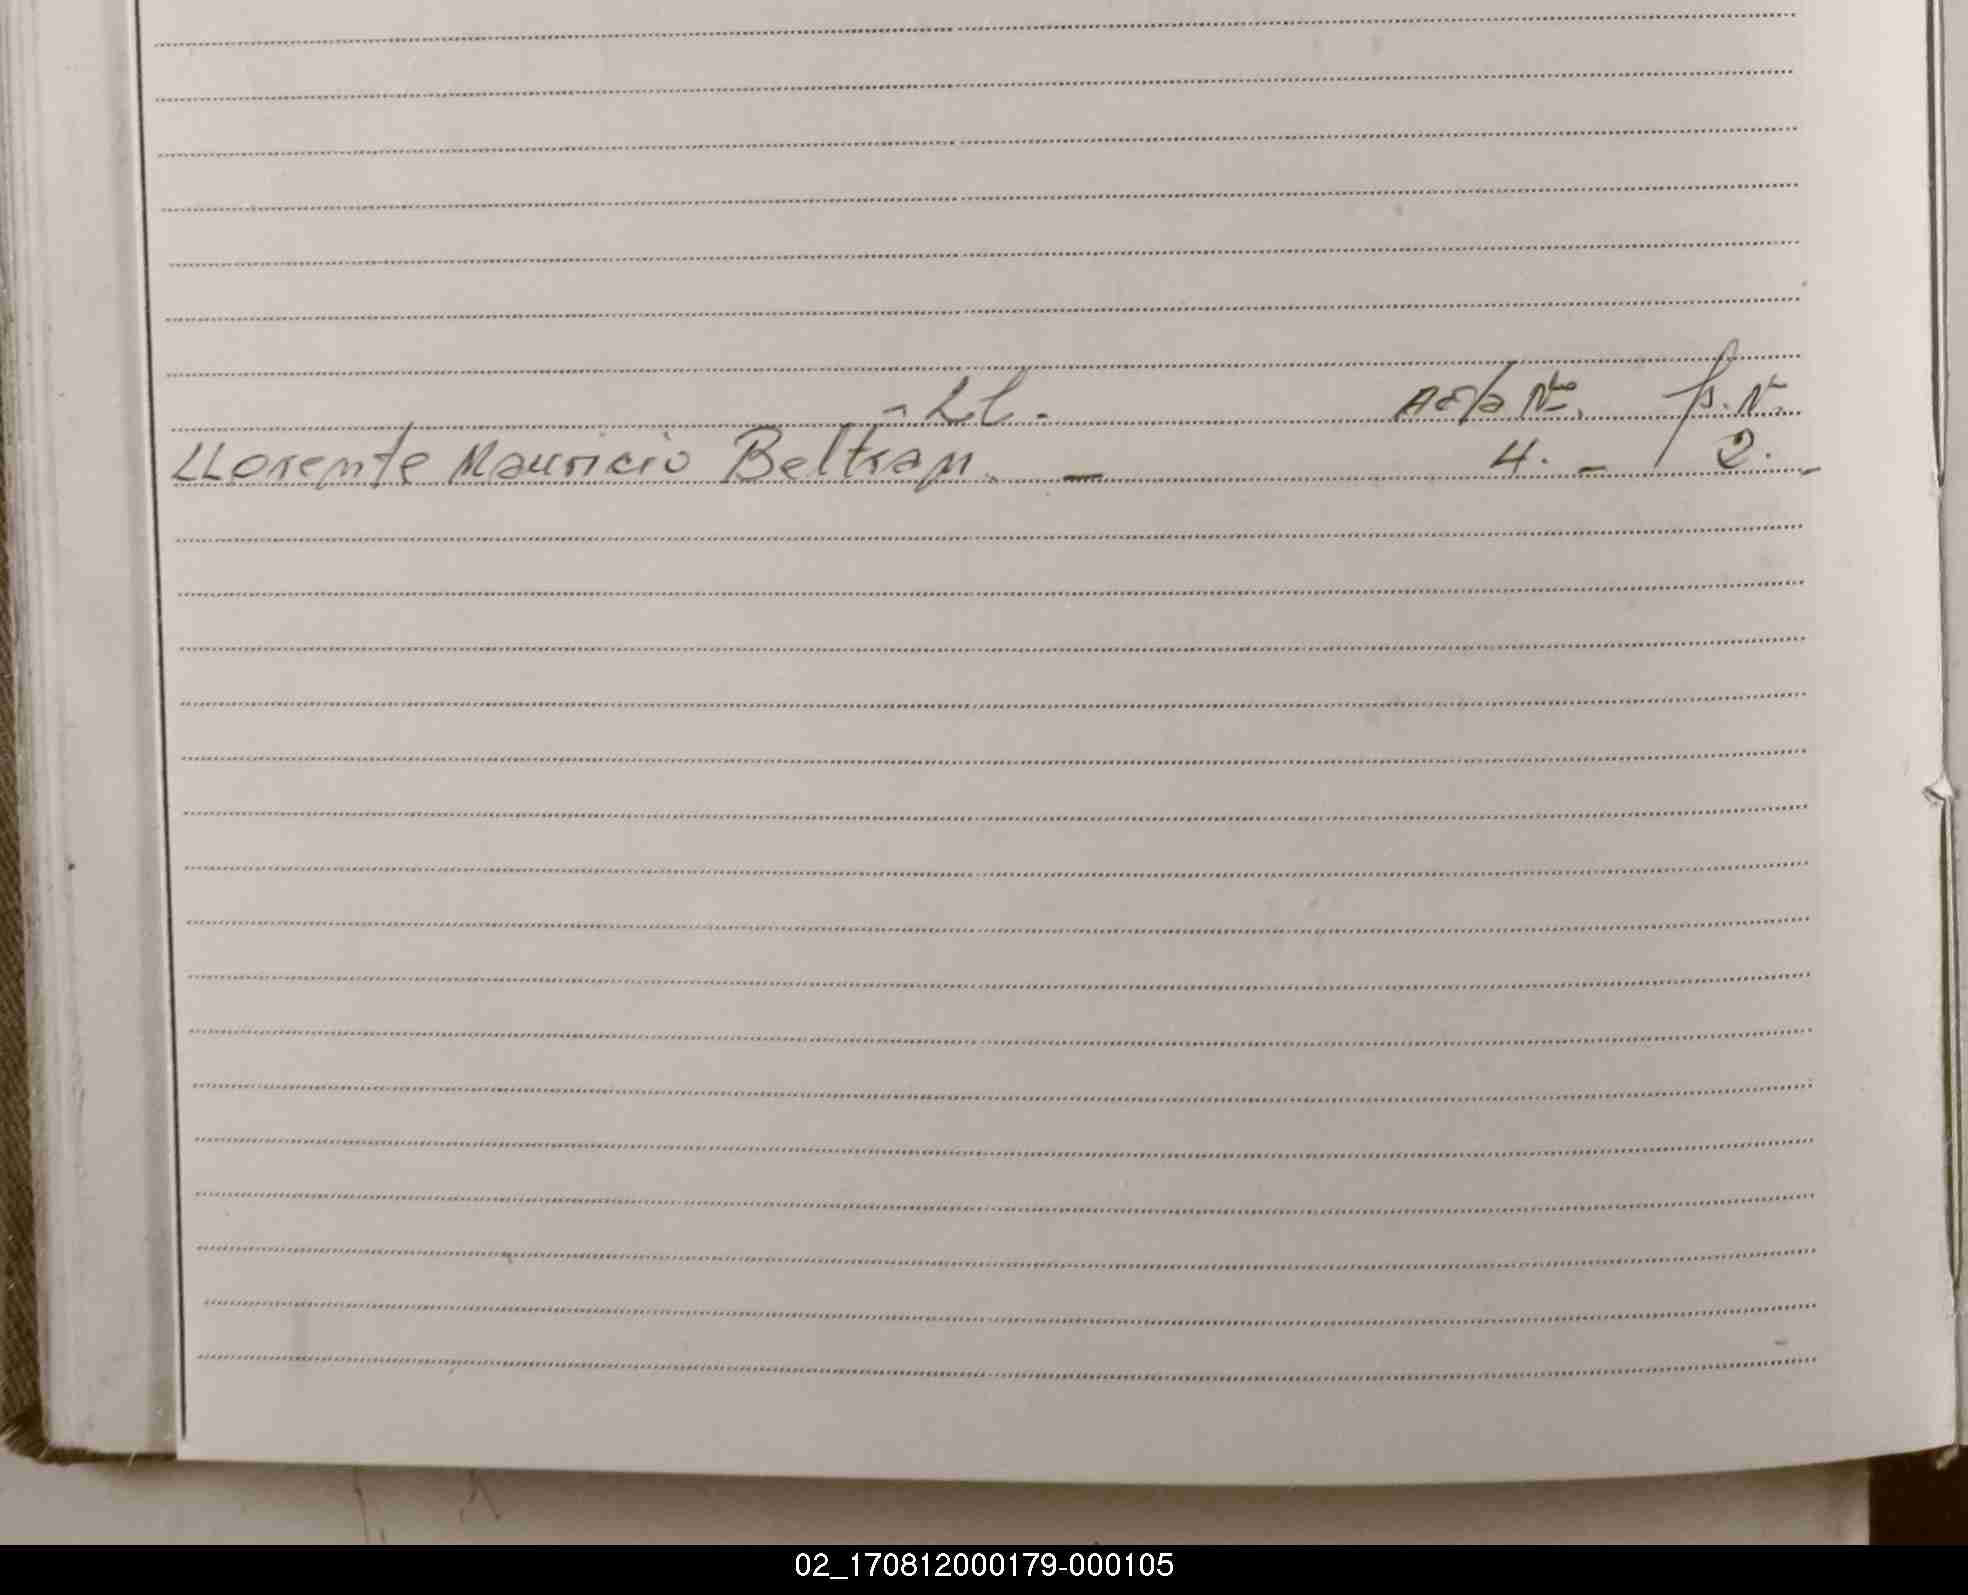 - Ll. Acta Nº. fs. Nº.
LLorente Mauricio Beltran. - 4. - 2. -
02_170812000179-000105